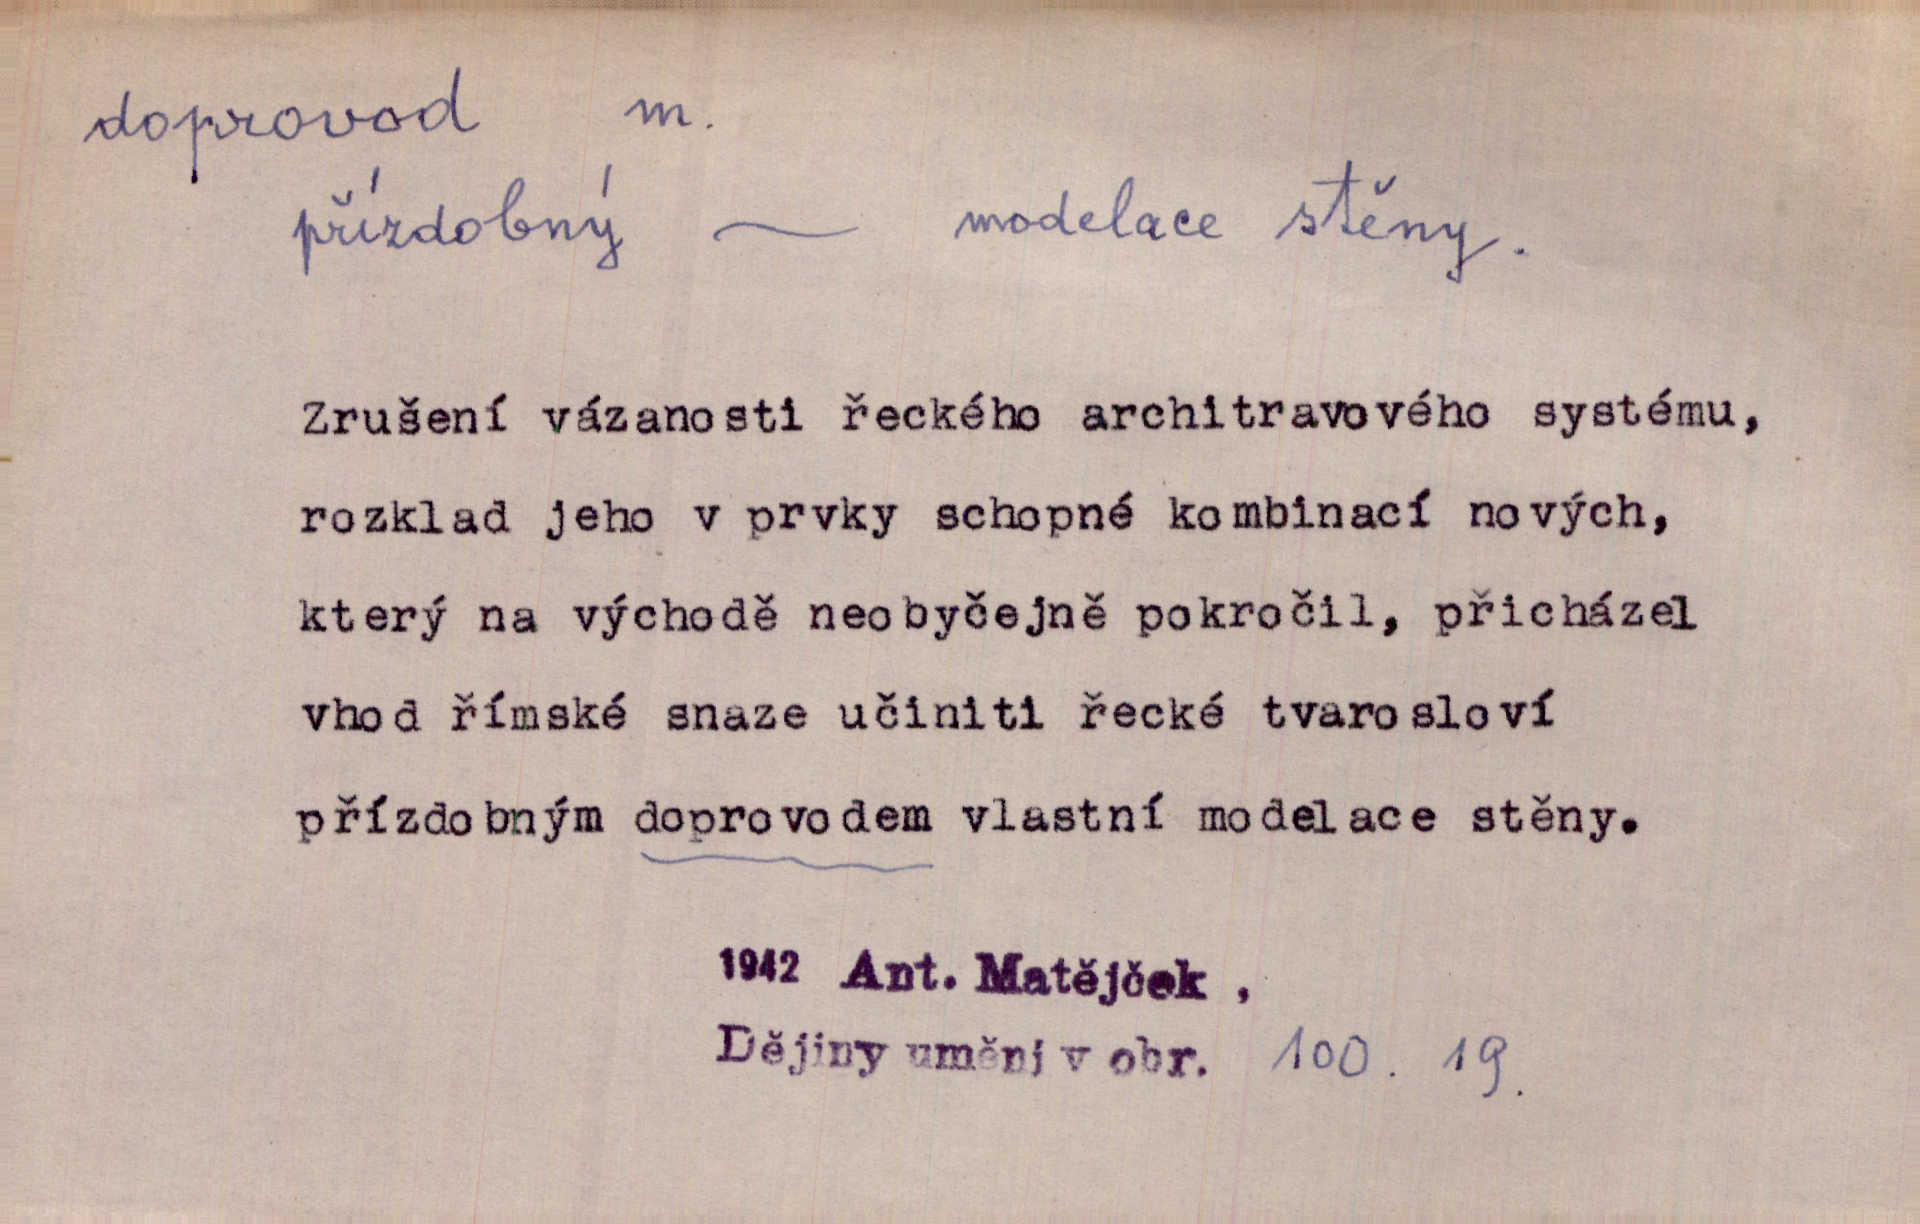 doprovod m.
přízdobný ~ modelace stěny.
Zrušení vázanosti řeckého architravového systému,
rozklad jeho v prvky schopné kombinací nových,
který na východě neobyčejně pokročil, přicházel
vhod římské snaze učiniti řecké tvarosloví
přízdobným doprovodem vlastní modelace stěny.
1942 Ant. Matějček,
Dějiny umění v obr. 100. 19.